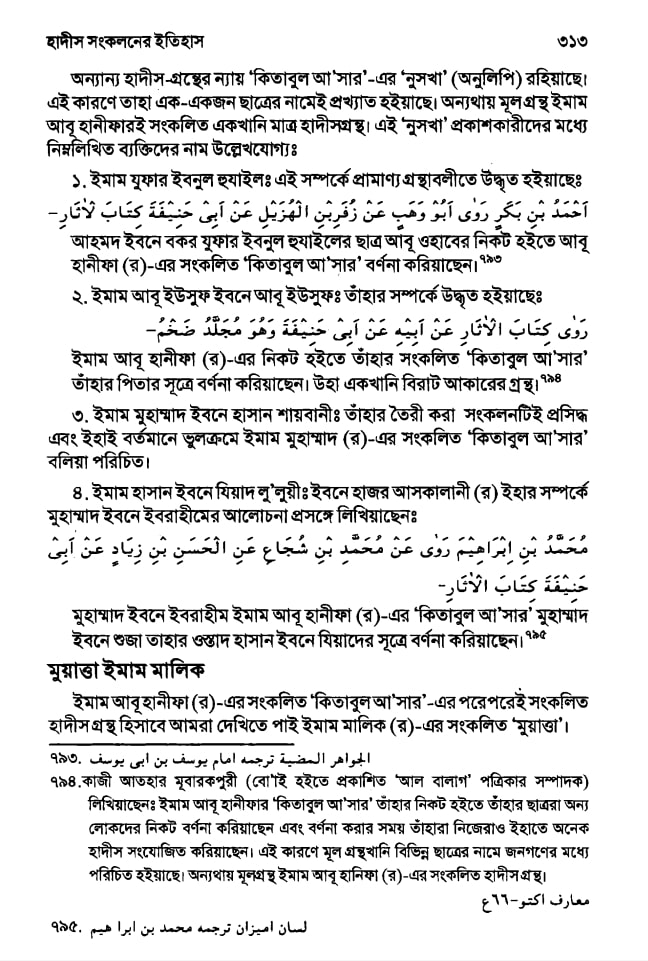 হাদীস সংকলনের ইতিহাস ৩১৩
অন্যান্য হাদীস-গ্রন্থের ন্যায় ‘কিতাবুল আ'সার’-এর ‘নুসখা’ (অনুলিপি) রহিয়াছে।
এই কারণে তাহা এক-একজন ছাত্রের নামেই প্রখ্যাত হইয়াছে। অন্যথায় মূলগ্রন্থ ইমাম
আবূ হানীফারই সংকলিত একখানি মাত্র হাদীসগ্রন্থ। এই ‘নুসখা’ প্রকাশকারীদের মধ্যে
নিম্নলিখিত ব্যক্তিদের নাম উল্লেখযোগ্যঃ
১. ইমাম যুফার ইবনুল হুযাইলঃ এই সম্পর্কে প্রামাণ্য গ্রন্থাবলীতে উদ্ধৃত হইয়াছেঃ
اَحْمَدُ بْنِ بَكَرٍ رَوٰى اَبُوْ وَهَبٍ عَنْ زُفَرِبْنِ الْهُزَيْلِ عَنْ اَبِىْ حَنِيْفَةَ كِتَابَ لْاٰثَارِ–
আহমদ ইবনে বকর যুফার ইবনুল হুযাইলের ছাত্র আবূ ওহাবের নিকট হইতে আবূ
হানীফা (র)-এর সংকলিত ‘কিতাবুল আ'সার’ বর্ণনা করিয়াছেন।৭৯৩
২. ইমাম আবূ ইউসুফ ইবনে আবূ ইউসুফঃ তাঁহার সম্পর্কে উদ্ধৃত হইয়াছেঃ
رَوٰى كِتَابَ الْاٰثَارِ عَنْ اَبِيْهِ عَنْ اَبِىْ حَنِيْفَةَ وَهُوَ مُجَلَّدُ ضَخْمُ–
ইমাম আবূ হানীফা (র)-এর নিকট হইতে তাঁহার সংকলিত ‘কিতাবুল আ'সার’
তাঁহার পিতার সূত্রে বর্ণনা করিয়াছেন। উহা একখানি বিরাট আকারের গ্রন্থ।৭৯৪
৩. ইমাম মুহাম্মাদ ইবনে হাসান শায়বানীঃ তাঁহার তৈরী করা সংকলনটিই প্রসিদ্ধ
এবং ইহাই বর্তমানে ভুলক্রমে ইমাম মুহাম্মাদ (র)-এর সংকলিত ‘কিতাবুল আ'সার’
বলিয়া পরিচিত।
৪. ইমাম হাসান ইবনে যিয়াদ লু'লুয়ীঃ ইবনে হাজর আসকালানী (র) ইহার সম্পর্কে
মুহাম্মাদ ইবনে ইবরাহীমের আলোচনা প্রসঙ্গে লিখিয়াছেনঃ
مُحَمَّدُ بْنِ اِبْرَاهِيْمَ رَوٰى عَنْ مُحَمَّدِ بْنِ شُجَاعٍ عَنِ الْحَسَنِ بْنِ زِيَادٍ عَنْ اَبِىْ
حَنِيْفَةَ كِتَابَ الْاٰثَارِ–
মুহাম্মাদ ইবনে ইবরাহীম ইমাম আবূ হানীফা (র)-এর ‘কিতাবুল আ'সার’ মুহাম্মাদ
ইবনে শুজা তাহার ওস্তাদ হাসান ইবনে যিয়াদের সূত্রে বর্ণনা করিয়াছেন।৭৯৫
মুয়াত্তা ইমাম মালিক
ইমাম আবূ হানীফা (র)-এর সংকলিত ‘কিতাবুল আ'সার’-এর পরেপরেই সংকলিত
হাদীসগ্রন্থ হিসাবে আমরা দেখিতে পাই ইমাম মালিক (র)-এর সংকলিত ‘মুয়াত্তা’।
৭৯৩. الجواهر المضية ترجمه امام يوسف بن ابى يوسف
৭৯৪. কাজী আতহার মূবারকপুরী (বো'ই হইতে প্রকাশিত ‘আল বালাগ’ পত্রিকার সম্পাদক)
লিখিয়াছেনঃ ইমাম আবূ হানীফার ‘কিতাবুল আ'সার’ তাঁহার নিকট হইতে তাঁহার ছাত্ররা অন্য
লোকদের নিকট বর্ণনা করিয়াছেন এবং বর্ণনা করার সময় তাঁহারা নিজেরাও ইহাতে অনেক
হাদীস সংযোজিত করিয়াছেন। এই কারণে মূল গ্রন্থখানি বিভিন্ন ছাত্রের নামে জনগণের মধ্যে
পরিচিত হইয়াছে। অন্যথায় মূলগ্রন্থ ইমাম আবূ হানিফা (র)-এর সংকলিত হাদীসগ্রন্থ।
معارف اکتو–٦٦ع
৭৯৫. لسان اميزان ترجمه محمد بن ابرا هيم